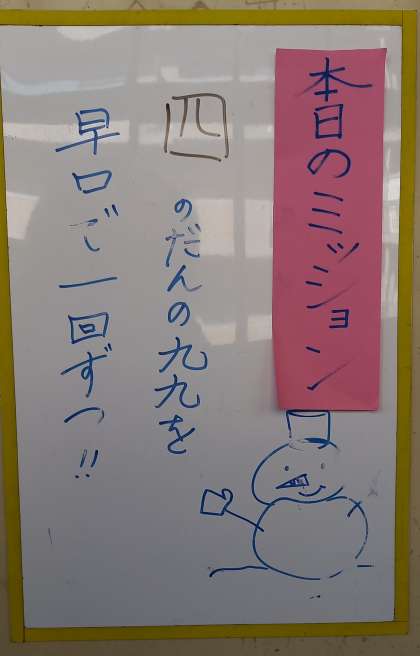 本日のミッション
四のだんの九九を
早口で一回ずつ!!